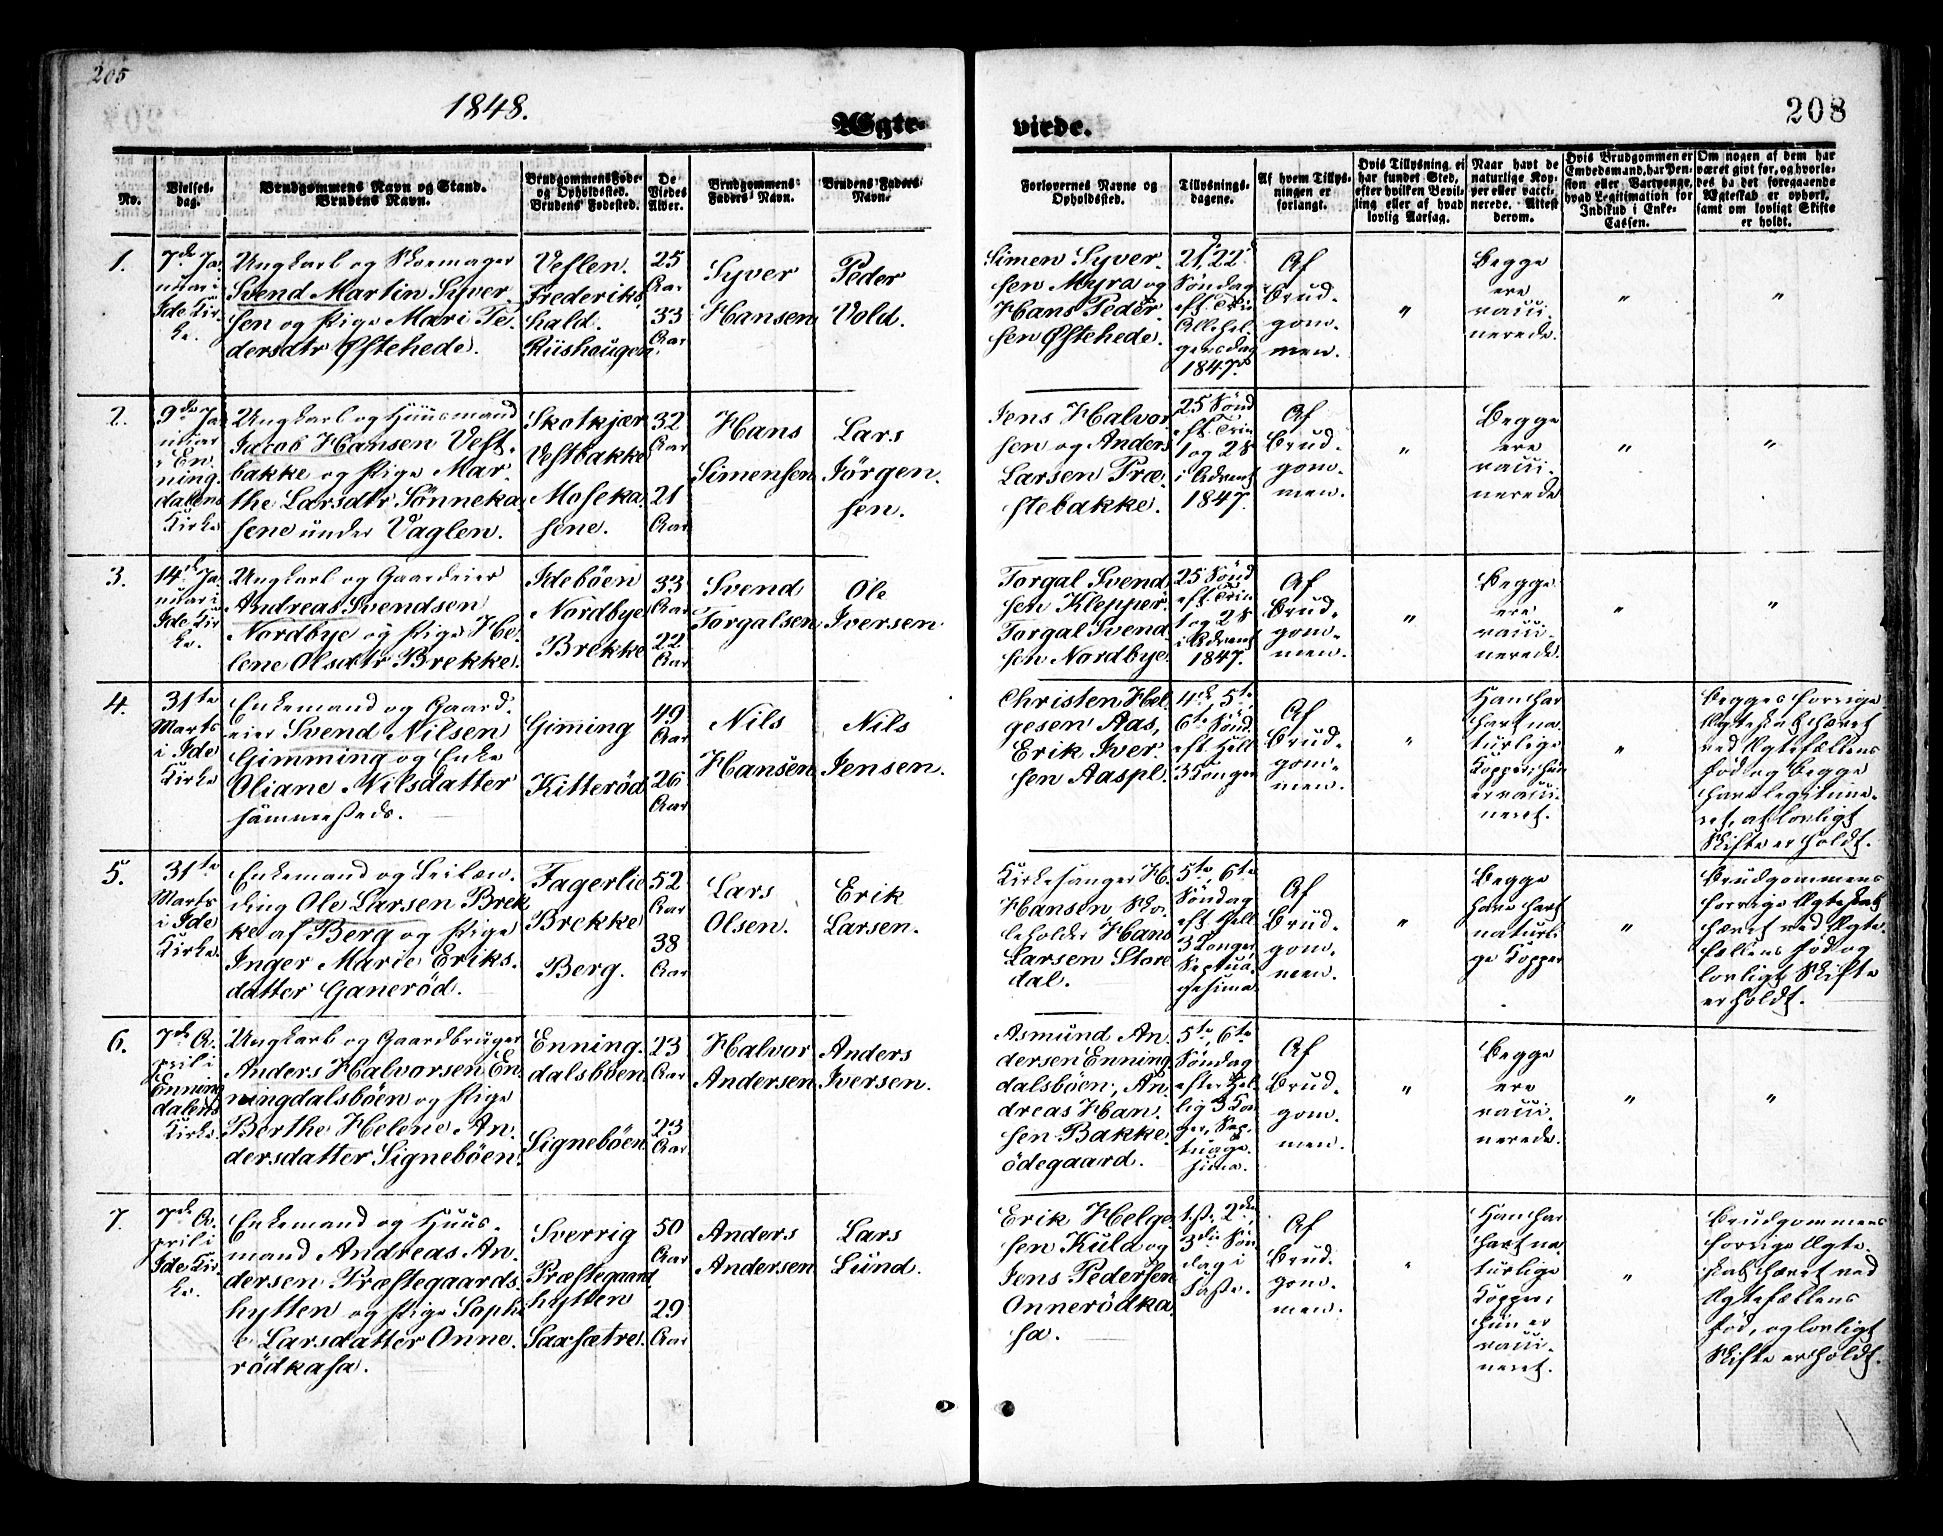 205
1848.
Ægte-
viede.
208
No.
Vielses-
dag.
Brudgommens Navn og Stand.
Brudens Navn.
Brudgommens Føde-
og Opholdssted.
Brudens Fødested.
De
Viedes
Alder.
Brudgommens
Faders Navn.
Brudens Faders
Navn.
Forlovernes Navne og
Opholdssted.
Tillysnings-
dagene.
Af hvem Tillys-
ningen er
forlangt.
Hvis Tillysning ei
har fundet Sted,
efter hvilken Bevil-
ling eller af hvad
lovlig Aarsag.
Naar havt de
naturlige Kop-
per eller vacci-
nerede. Attest
derom.
Hvis Brudgommen er
Embedsmand, har Pen-
sion eller Vartpenge,
hvad Legitimation for
Indskud i Enke-
Cassen.
Om nogen af dem har
været givt før, og hvorle-
des da det foregaaende
Ægteskab er ophørt,
samt om lovligt Skifte
er holdt.
1.
7de Ja-
nuar i
Ide Kir-
ke.
Ungkarl og Skomager
Svend Martin Syver-
sen og Pige Mari Pe-
dersdtr Østehede.
Veslen.
Frederiks-
hald.
Riishaugen.
25
Aar
33
Aar
Syver
Hansen
Peder
Vold.
Simen Syver-
sen Myra og
Hans Peder-
sen Østehede.
21, 22d
Søndag
eft. Trin
Allehel-
gensdag
1847.
Af
Brud-
gom-
men.
"
Begge
ere
vacci-
nerede.
"
"
2.
9de Ja-
nuar
i En-
ning-
dalens
Kirke
Ungkarl og Huusmand
Jacob Hansen Vest-
bakke og Pige Mar-
the Larsdtr Tønneka-
sene under Vaglen.
Skotkjær
Vestbakke
Moseka-
sene.
32
Aar
21
Aar
Hans
Simensen
Lars
Jørgen-
sen.
Jens Halvor-
sen og Anders
Larsen Præ-
stebakke.
25 Sønd
eft. Trin
1 og 2 S
i Advent
1847.
Af
Brud-
gom-
men.
"
Begge
ere
vacci-
nerede
"
"
3.
14de Ja-
nuar i
Ide Kir-
ke.
Ungkarl og Gaardeier
Andreas Svendsen
Nordbye og Pige He-
lene Olsdtr Brekke.
Idebøen
Nordbye
Brekke
33
Aar
22
Aar
Svend
Torgalsen
Ole
Iversen
Torgal Svend-
sen Klepper.
Torgal Svend-
sen Nordbye.
25 Sønd
eft. Trin
1 og 2 S
i Advent
1847.
Af
Brud-
gom-
men.
"
Begge
ere
vacci-
nerede.
"
"
4.
31te
Marts
i Ide
Kirke
Enkemand og Gaard-
eier Svend Nilsen
Gimming og Enke
Oliane Nilsdatter
sammesteds.
Gimming
Kitterød
49
Aar
26
Aar
Nils
Hansen
Nils
Jensen.
Christen Hel-
gesen Aas,
Erik Iver-
sen Aaspl.
4de, 5te,
6te Sønd
eft. Hell
3 Konger
Af
Brud-
gom-
men.
"
Han har
havt na-
turlige
Kopper, hun
er vacci-
neret.
"
Begges forrige
Ægteskab hævet
ved Ægtefællens
Død og begge
have legitime-
ret, at lovligt
Skifte er holdt.
5.
31te
Marts
i Ide
Kirke.
Enkemand og Leilæn-
ding Ole Larsen Brek-
ke af Berg og Pige
Inger Marie Eriks-
datter Ganerød.
Fagerlie
Brekke
Berg.
52
Aar
38
Aar
Lars
Olsen.
Erik
Larsen.
Kirkesanger H.
Hansen, Sko-
leholder Hans
Larsen Store-
dal.
5te, 6te
Søndag
eft. Hell
3 Konger
Septua-
gesima.
Af
Brud-
gom-
men.
"
Begge
have havt
naturli-
ge Kopper
"
Brudgommens
forrige Ægteskab
hævet ved Ægte-
fællens Død og
lovligt Skifte
er holdt.
6.
7de A-
pril i
Enning-
dalens
Kirke
Ungkarl og Gaardbruger
Anders Halvorsen En-
ningdalsbøen og Pige
Berthe Helene An-
dersdatter Signebøen.
Enning-
dalsbøen.
Signebøen
23
Aar
23
Aar
Halvor
Andersen
Anders
Iversen.
Asmund An-
dersen Enning-
dalsbøen, An-
dreas Han-
sen Bakke-
ødegaard.
5te, 6te
Søndag
efter Hel-
lig 3 Kon-
ger, Sep-
tuage-
sima.
Af
Brud-
gom-
men.
"
Begge
ere
vacci-
nerede.
"
"
7.
7de A-
pril i
Ide Kir-
ke.
Enkemand og Huus-
mand Andreas An-
dersen Præstegaards-
hytten og Pige Sophi-
e Larsdatter Onne-
rødkasa.
Sverrig
Præstegaard
hytten
Saxsætre.
50
Aar
29
Aar
Anders
Andersen
Lars
Lund.
Erik Helge-
sen Kula og
Jens Pedersen
Onnerødka-
sa.
1ste, 2den,
3die Søn-
dag i
Faste.
Af
Brud-
gom-
men.
"
Han har
havt na-
turlige
Kopper,
hun er
vacci-
neret.
"
Brudgommens
forrige Ægte-
skab hævet ved
Ægtefællens
Død, og lovligt
Skifte er holdt.